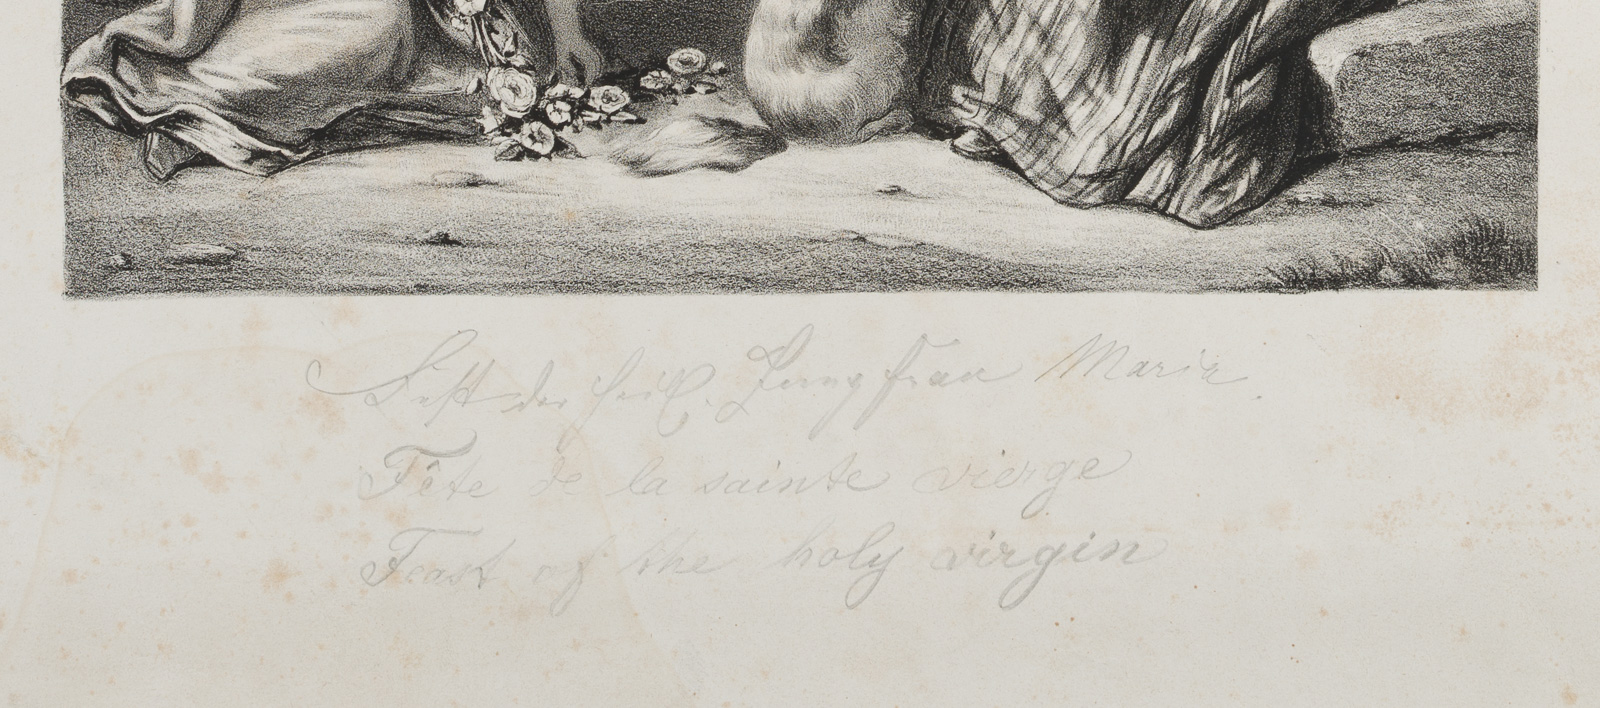 Fest der heil. Jungfrau Maria
Fête de la sainte vierge
Feast of the holy virgin